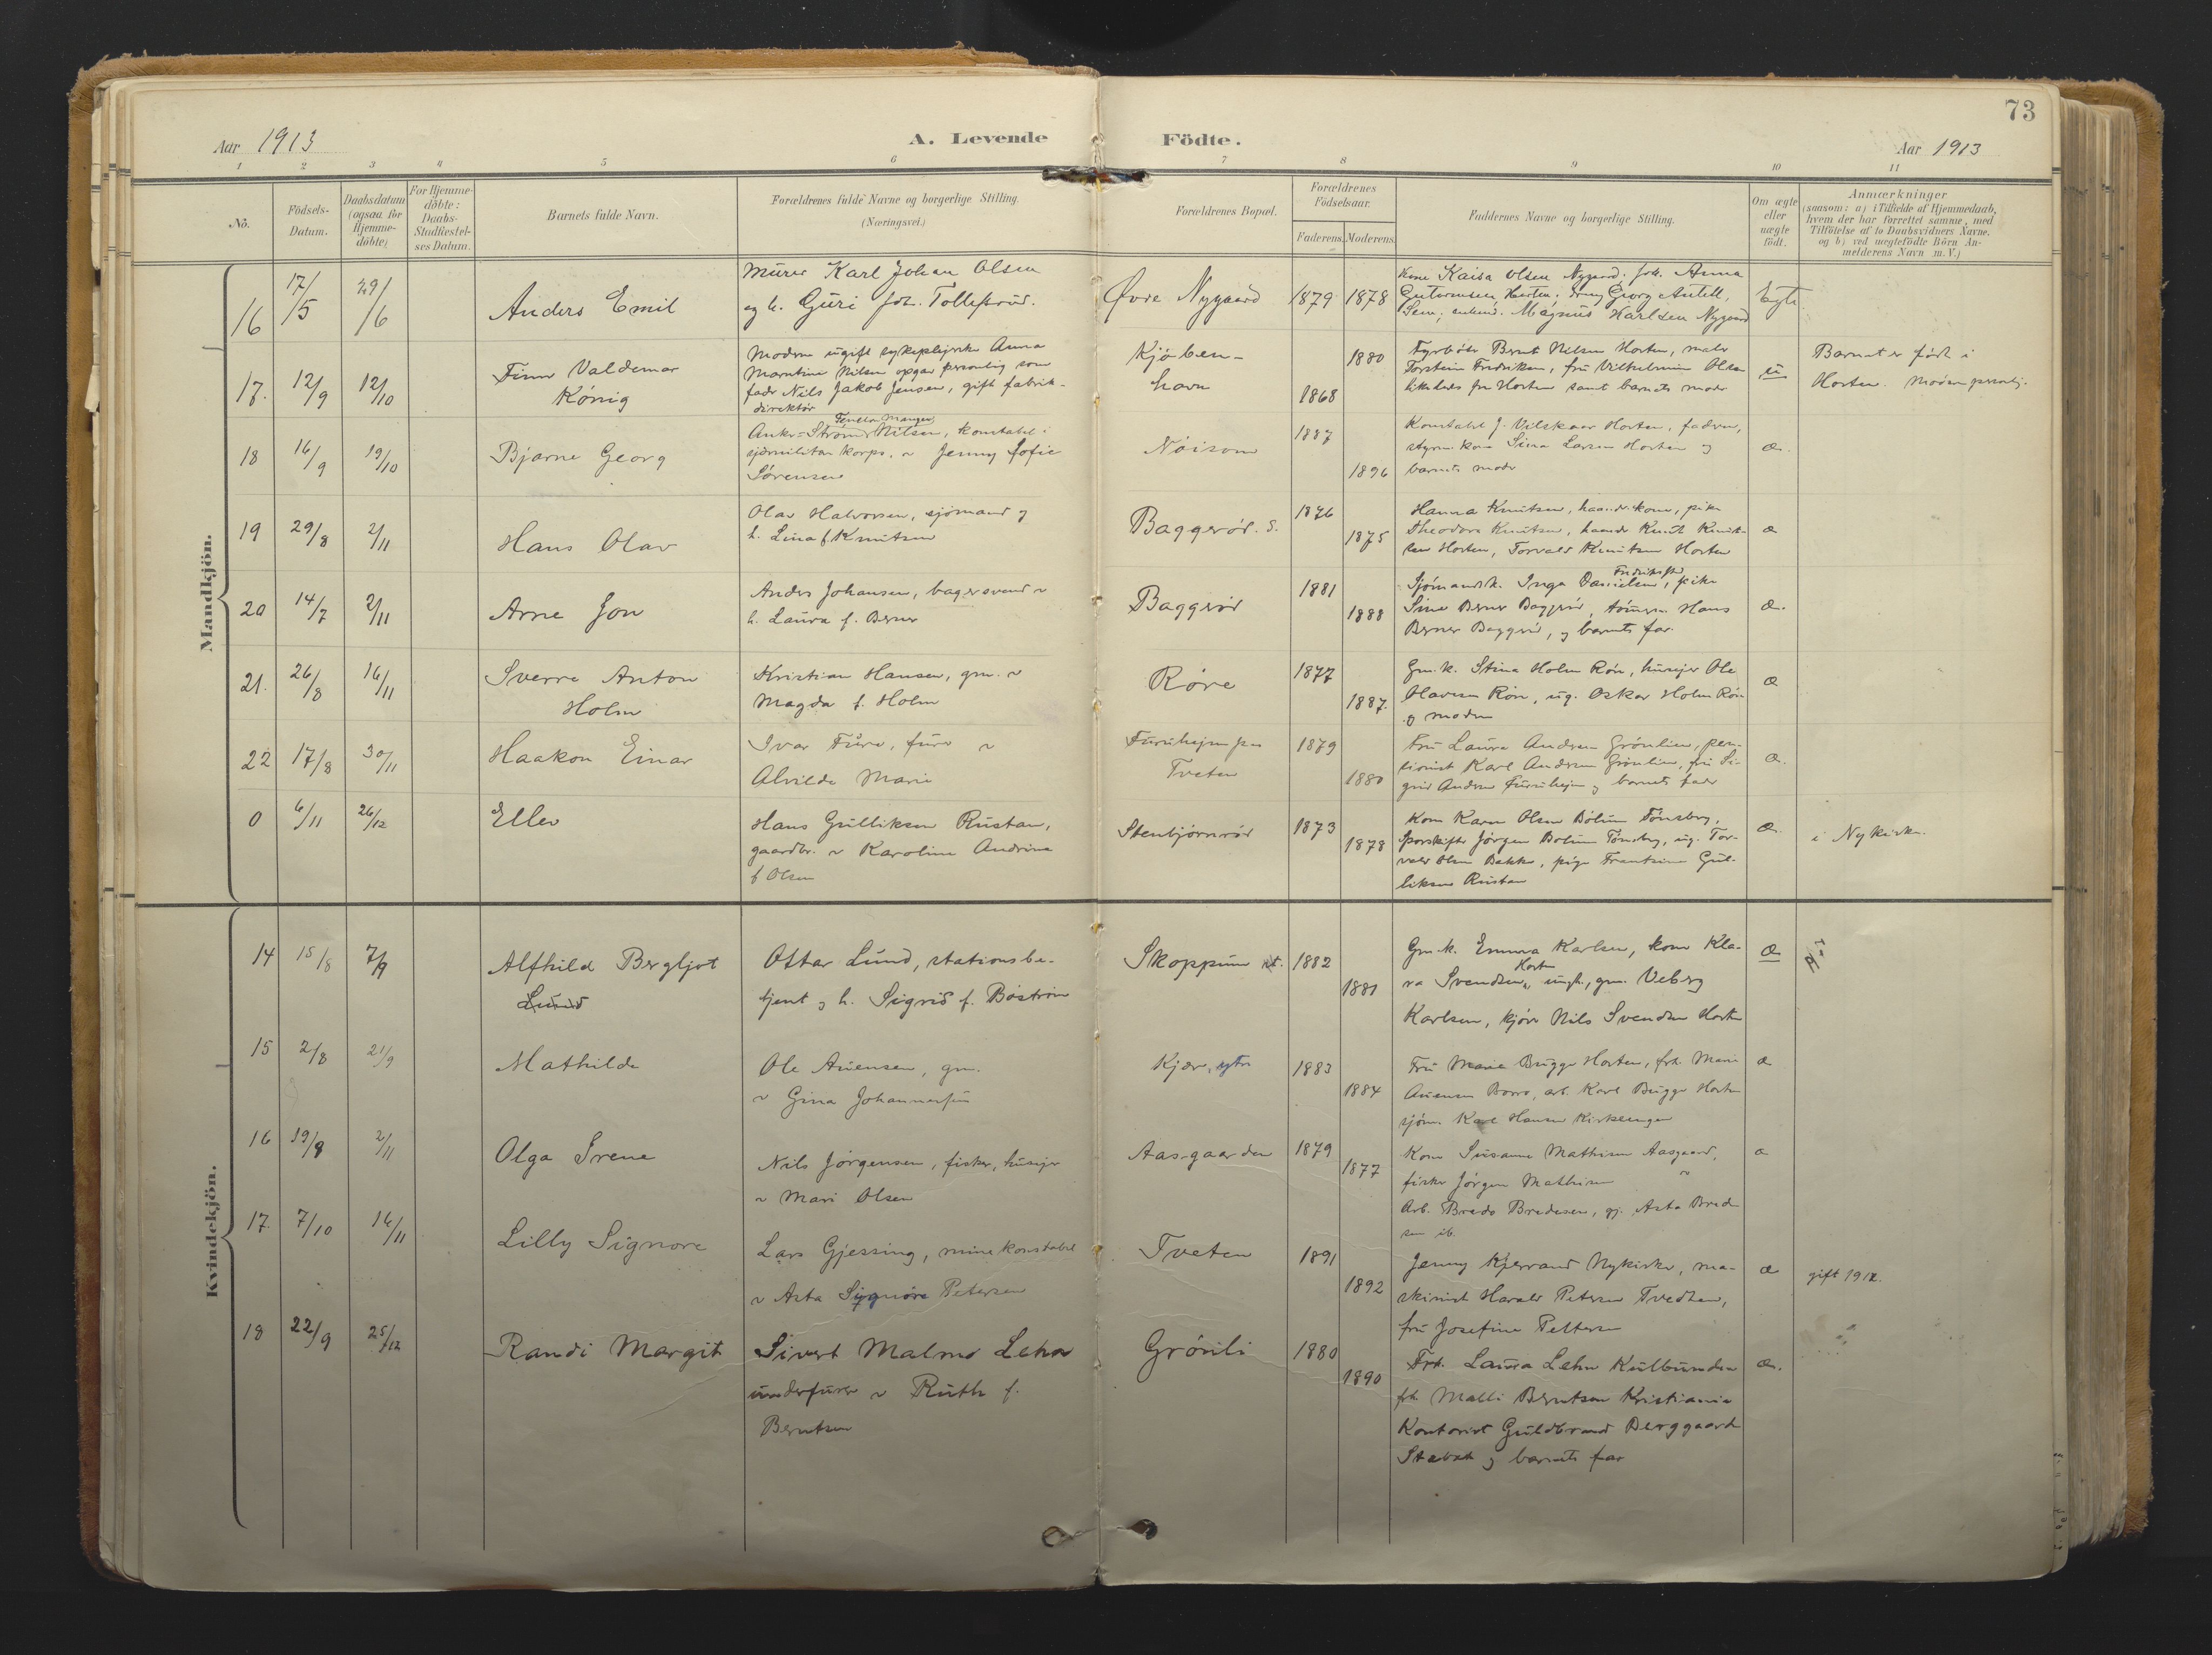 73
Aar 1913
A. Levende Födte.
Aar 1913
1 2 3 4 5 6 7 8 9 10 11
No.
Födsels-Datum.
Daabsdatum (ogsaa for Hjemme-döbte)
For Hjemme-döbte: Daabs-Stadfæstel-ses Datum.
Barnets fulde Navn.
Forældrenes fulde Navne og borgerlige Stilling. (Næringsvei.)
Forældrenes Bopæl.
Forældrenes Födselsaar.
Faderens. Moderens.
Faddernes Navne og borgerlige Stilling.
Om ægte eller uægte födt.
Anmærkninger
(saasom: a) i Tilfælde af Hjemmedaab,
hvem der har forrettet samme, med
Tilföielse af to Daabsvidners Navne.
og b) ved uægtefödte Börn An-
melderens Navn m.V.)
Mandkjön.
16 17/5 29/6 Anders Emil
Murer Karl Johan Olsen
og h. Guri f
Øvre Nygaard 1879 1878
Kone Kaisa Olsen Nygaard.
Georg
Magnus Karlsen Nygaard
Egte
17. 12/9 12/10 Finn Valdemar
König
Moderen ugift sykepleierske Anna
Marntine Nilsen opgav personlig som
fader Nils Jakob Jensen, gift fabrik-
direktör
Kjöben-
havn
1868 1880
Fyrböter Bernt Nilsen Horten, maler
Torstein Fredriksen, fru Vilhelmine Olsen
likeledes fra Horten samt barnets moder
u
Barnet er födt i
Horten. Moderen personlig.
18 16/9 19/10 Bjarne Georg
Anker Ström Nilsen, konstabel i
sjømilitære korps. Jenny Sofie
Sörensen
Nöisom 1887 1896
Konstabel J. Vilskaar Horten, faderen,
styrm. kone Sina Larsen Horten og
barnets moder
æ.
19 29/8 2/11 Hans Olav
Olav Halvorsen, sjömand og
h. Lina f. Knutsen
Baggeröd. S. 1876 1875
Hanna Knutsen, haandv.kone, pike
Theodora Knutsen, haandv Knut Knut-
sen Horten, Torvald Knutsen Horten
æ
20 14/7 2/11 Arne Jon
Anders Johansen, bagersvend
h. Laura f. Berner
Baggeröd 1881 1888
Fredriksstad
Sjömandsk. Inga Danielsen, pike
Sina Berner Baggeröd, tömmerm. Hans
Berner Baggeröd, og barnets far.
æ.
21. 26/8 16/11 Sverre Anton
Holm
Kristian Hansen, gm.
Magda f. Holm
Röre 1877 1887.
Gm.k. Stina Holm Röre, huseier Ole
Olavsen Röre, ug. Oskar Holm Röre
og moderen
æ
22 17/8 30/11 Haakon Einar
Ivar Fure, furer
Alvilda Marie
Furuheim pr.
Tveten
1879 1880
Fru Laura Andersen Grönlien, pen-
sionist Karl Andersen Grönlien, fru Si-
grid Andersen Furuheim og barnets fader
æ.
0 6/11 26/12 Ellev
Hans Gulliksen Rustan,
gaardbr. Karoline Andrine
f Olsen
Stenbjörnröd 1873 1878
Kone Karen Olsen Bolum Tönsberg,
Sporskifter Jörgen Bolum Tönsberg, ug. Tor-
vald Olsen Bakke, pige Frantsine Gul-
liksen Rustan
æ.
i Nykirke.
Kvindekjön.
14 15/8 7/9 Alfhild Bergljot
Lund
Ottar Lund, stationsbe-
tjent og h. Sigrid f. Boström
Skoppum st. 1882 1881
Gm.k. Emma Karlsen, kone Kla-
ra Svendsen, Horten ungk., gm. Veberg
Karlsen, kjörer Nils Svendsen Horten
æ
15 2/8 21/9 Mathilde
Ole Auensen, gm.
Gina Johannesen
Kjær, ytre 1883 1884
Fru Marie Brugge Horten, frk. Marie
Auensen Borre, arb. Karl Brugge Horten
sjöm. Karl Hansen Kirkeengen
æ
16 19/8 2/11 Olga Irene
Nils Jörgensen, fisker, huseier
Mari Olsen
Aasgaarden 1879 1877
Kone Susanne Mathisen Aasgaard,
fisker Jörgen Mathisen
Arb. Brede Bredesen, gj. Asta Brede-
sen ib.
æ
17. 7/10 16/11 Lilly Signore
Lars Gjessing, minekonstabel
Asta Signore Petersen
Tveten 1891 1892
Jenny Kjerrand Nykirke, ma-
skinist Harald Petersen Tvedten,
fru Josefine Pettersen
æ
gift 1912.
18 22/9 25/12 Randi Margit
Sivert Malmo Lehn
underfurer Ruth f.
Berntsen
Grönli 1880 1890
Frk. Laura Lehn Kulbunden
frk Malli Berntsen Kristiania
Kontorist Guldbrand Berggaard
Stabæk og barnets far
æ.